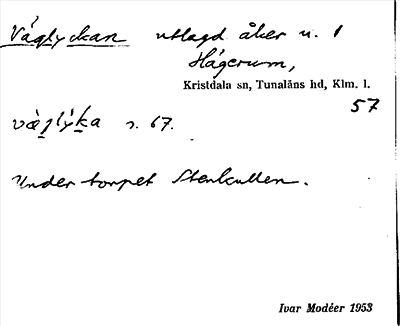 Väglyckan utlagd åker u. 1
Hägerum,
Kristdala sn, Tunaläns hd, Klm. l.
57
s. 67.
Under torpet Stenkullen.
Ivar Modéer 1953